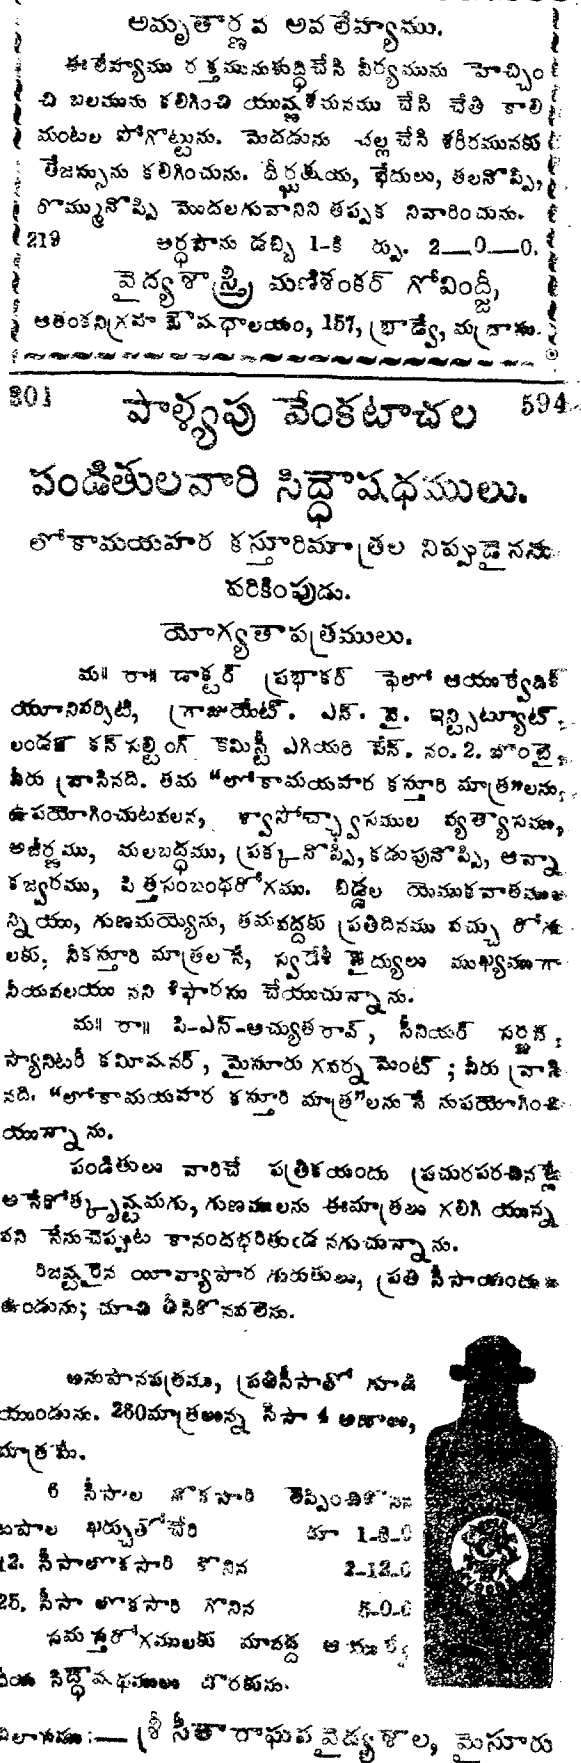 అమృతార్ణవ అవలేహ్యము.
ఈలేహ్యము రక్తమునుశుద్ధిచేసి వీర్యమును హెచ్చిం
చి బలమును కలిగించి యుష్ణశమనము చేసి చేతి కాలి
మంటల పోగొట్టును. మెదడును చల్ల చేసి శరీరమునకు
తేజస్సును కలిగించును. దీర్ఘక్షయ, భేదులు, తలనొప్పి,
రొమ్మునొప్పి మొదలగువానిని తప్పక నివారించును.
219 అర్ధపౌను డబ్బి 1-కి రు. 2—0—0.
వైద్యశాస్త్రి మణిశంకర్ గోవింద్జీ,
ఆతంకనిగ్రహ ఔషధాలయం, 157, బ్రాడ్వే, మద్రాసు.
801 పాళ్యపు వేంకటాచల 594
పండితులవారి సిద్ధౌషధములు.
లోకామయహర కస్తూరిమాత్రల నిప్పుడైనను
పరికింపుడు.
యోగ్యతాపత్రములు.
మ॥ రా॥ డాక్టర్ ప్రభాకర్ ఫెలో ఆయుర్వేడిక్
యూనివర్సిటి, గ్రాజుయేట్. ఎన్. వై. ఇన్స్టిట్యూట్,
లండన్ కన్సల్టింగ్ కెమిస్ట్రీ ఎగియరి లేన్. నం. 2. బొంబై,
వీరు వ్రాసినది. తమ “లోకామయహర కస్తూరి మాత్ర”లను,
ఉపయోగించుటవలన, శ్వాసోచ్ఛ్వాసముల వ్యత్యాసము,
అజీర్ణము, మలబద్ధము, ప్రక్క నొప్పి, కడుపునొప్పి, ఆన్నా
కజ్వరము, పిత్తసంబంధరోగము. బిడ్డల యెముకవాతము
న్నియు, గుణమయ్యెను, తమవద్దకు ప్రతిదినము వచ్చు రోగు
లకు, నీకస్తూరి మాత్రలనే, స్వదేశి వైద్యులు ముఖ్యముగా
నీయవలయు నని శిఫారసు చేయుచున్నాను.
మ॥ రా॥ పి-ఎస్-అచ్యుతరావ్, సీనియర్ సర్జన్,
స్యానిటరీ కమీషనర్, మైసూరు గవర్నమెంట్; వీరు వ్రాసి
నది. “లోకామయహర కస్తూరి మాత్ర”లను నే నుపయోగించి
యున్నాను.
పండితులు వారిచే పత్రికయందు ప్రచురపరచినట్లే
అనేకోత్కృష్టమగు, గుణములను ఈమాత్రలు గలిగి యున్న
వని నేనుచెప్పుట కానందభరితుఁడ నగుచున్నాను.
రిజష్టరైన యీవ్యాపార గురుతులు, ప్రతి సీసాయందు
ఉండును; చూచి తీసికొనవలెను.
అనుపానపత్రము, ప్రతిసీసాతో గూడి
యుండును. 260మాత్రలున్న సీసా 4 అణాలు,
మాత్రమే.
6 సీసాల నొకసారి తెప్పించికొనిన
టపాల ఖర్చుతోచేరి రూ 1-8-0
12. సీసాలొకసారి కొనిన 2-12-0
25. సీసా లొకసారి గొనిన 5-0-0
సమస్తరోగములకు మావద్ద ఆయుర్వే
దీయ సిద్ధౌషధములు దొరకును.
విలాసము:— శ్రీ సీతారాఘవవైద్యశాల, మైసూరు